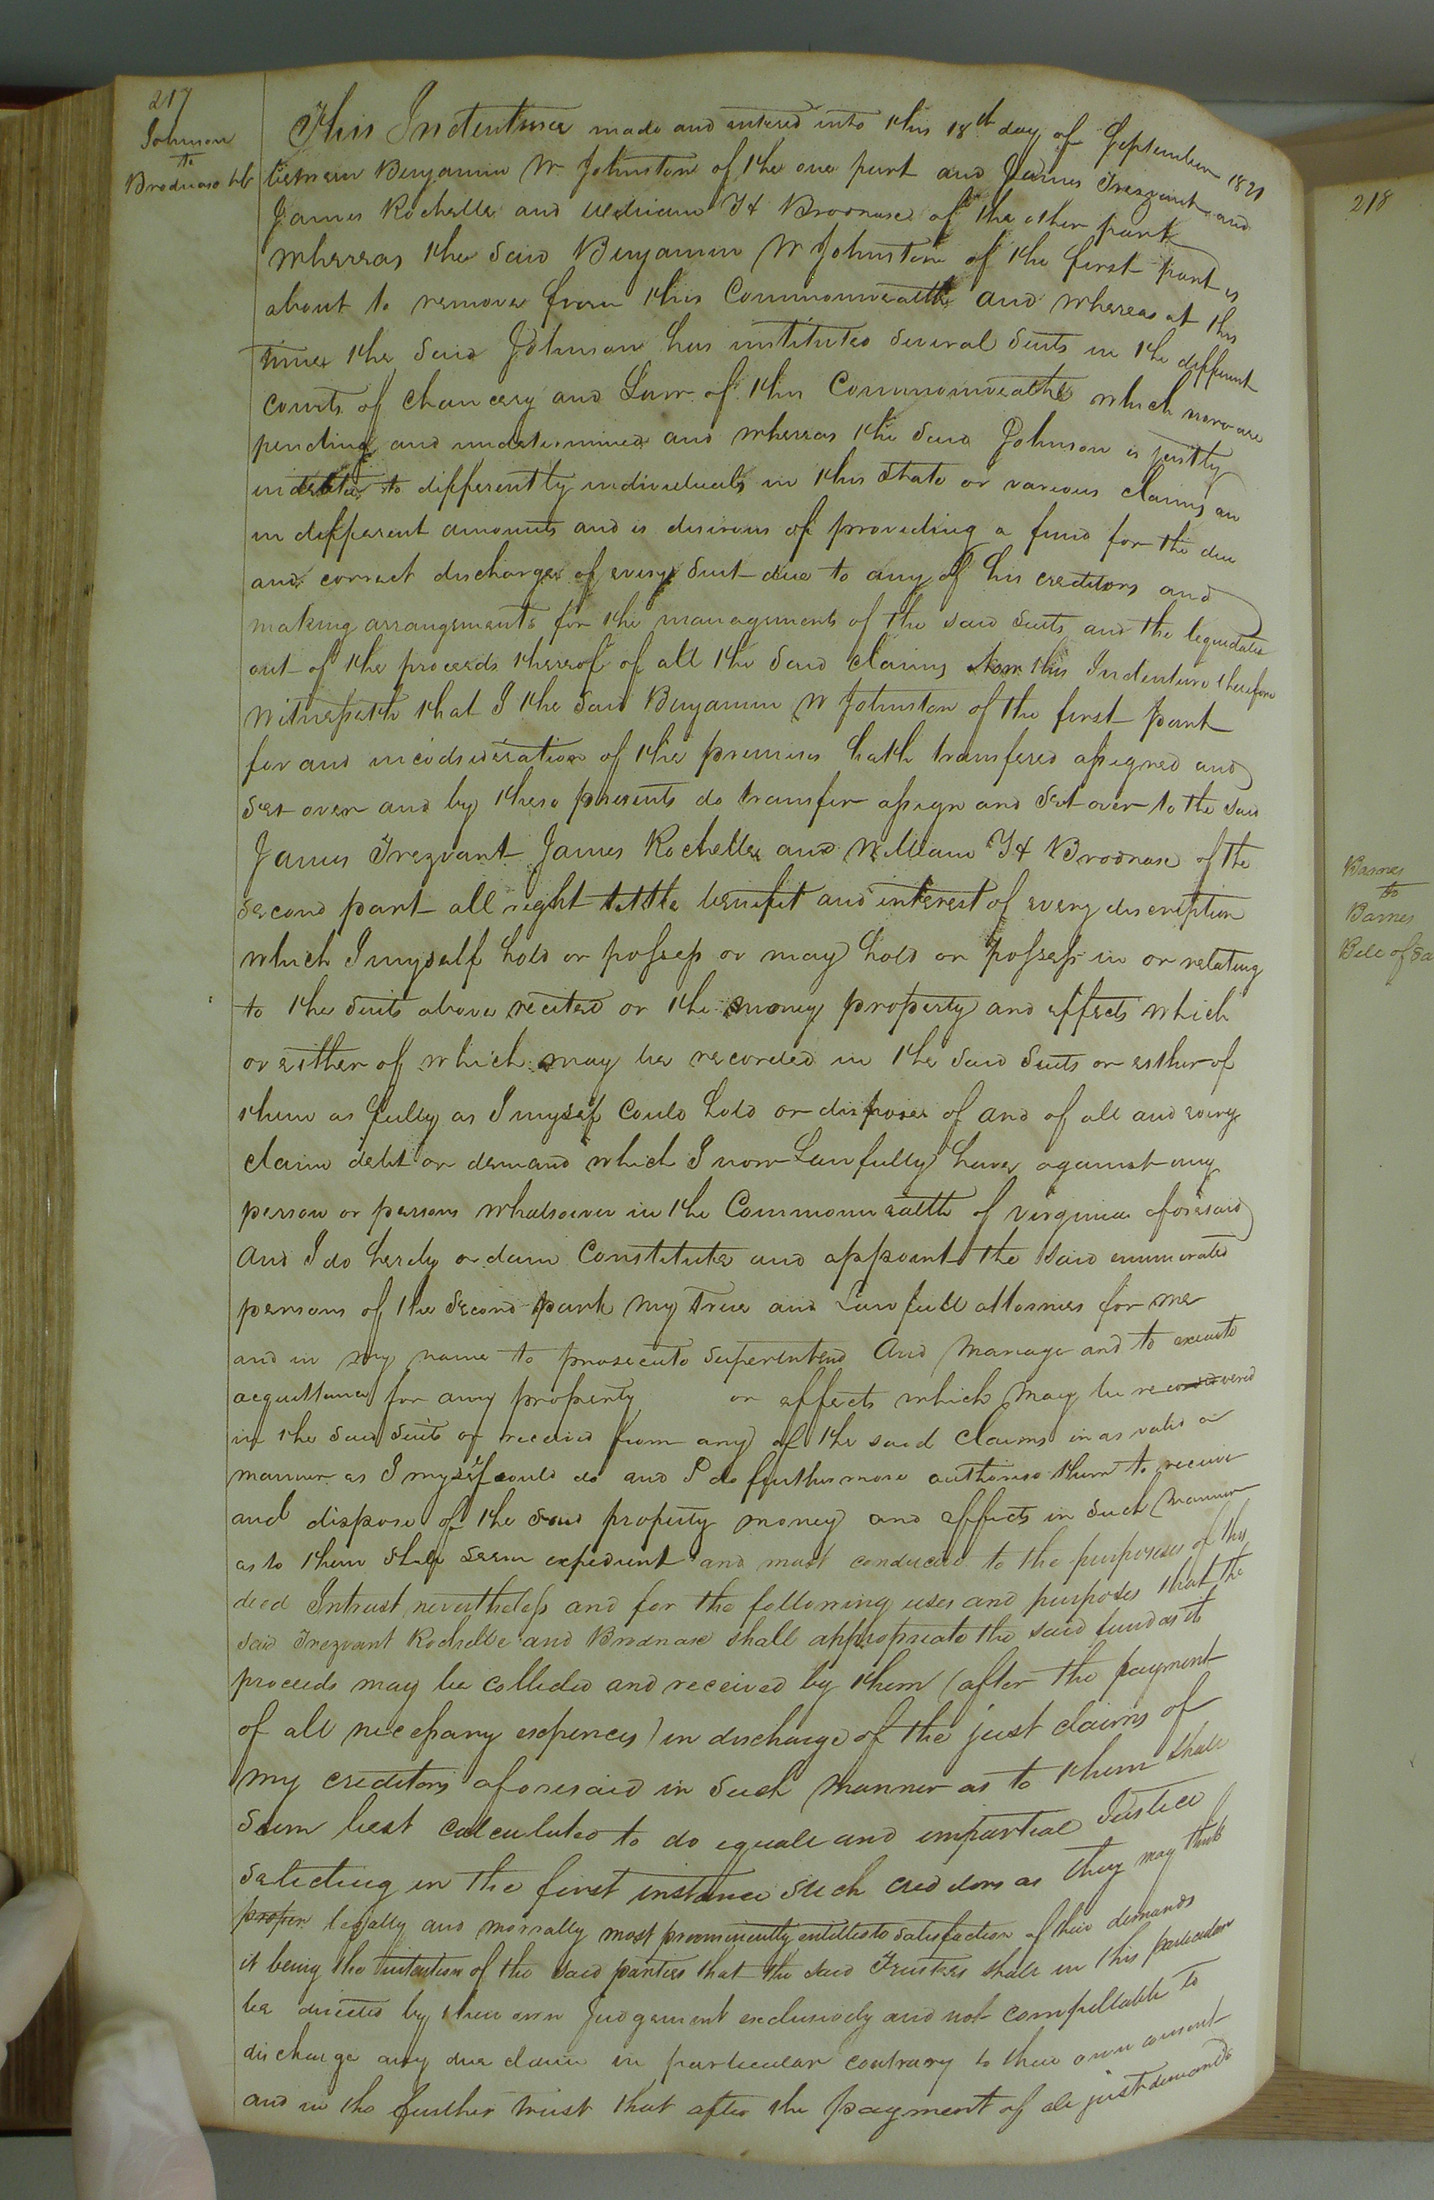 217
Johnson
to
Brodnax &c
This Indenture made and entered into this 18th day of September 1821
between Benjamin W Johnston of the one part and James Trezvant and
James Rochelle and William H Brodnax of the other part
whereas the said Benjamin W Johnston of the first part is
about to remove from this Commonwealth and whereas at this
time the said Johnson has instituted several suits in the different
courts of chancery and Law of this Commonwealth which now are
pending and undetermined and whereas the said Johnson is justly
indebted to differently individuals in this State or various claims an
in different amounts and is desirous of providing a fund for the due
and correct discharge of every suit due to any of his creditors and
making arrangements for the managements of the said suits and the liquidation
out of the proceeds thereof of all the said claims this Indenture therefore
Witnesseth that I the said Benjamin W Johnston of the first part
for and in consideration of the premises hath transfered assigned and
set over and by these presents do transfer assign and set over to the said
James Trezvant James Rochelle and William H Brodnax of the
second part all right tittle benifit and interest of every discription
which I myself hold or possess or may hold or possess in or relating
to the suits above recited or the money property and effects which
or either of which may be recorded in the said suits or either of
them as fully as I myself could hold or dispose of and of all and every
claim debt or demand which I now Lawfully have against any
person or persons whatsoever in the Commonwealth of virginia aforesaid
and I do hereby ordain Constitute and appoint the said enumerated
persons of the second part my true and Lawfull attornies for me
and in my name to prosecute superintend And Manage and to execute
acquittance for any property or effects which may be recovered
in the said suits or received from any of the said Claims in as valid a
manner as I myself could do and I do furthermore authorise them to receive
and dispose of the said property money and effects in such manner
as to them shall seem expedient and most conducive to the purposes of this
deed Intrust nevertheless and for the following uses and purposes that the
said Trezvant Rochelle and Brodnax shall appropriate the said fund as its
proceeds may be collected and received by them (after the payment
of all necessary expences) in discharge of the just claims of
my creditors aforesaid in such manner as to them shall
seem best calculated to do equal and impartial Justice
selecting in the first instance such creditors as they may think
proper legally and morrally most preominently entitled to satisfaction of their demands
it being the intention of the said parties that the said Trustees shall in this particular
be directed by their own Judgement exclusively and not compellable to
discharge any due claim in particular contrary to their own consent
and in the further trust that after the payment of all just demands
218
Barnes
to
Barnes
Bill of Sa